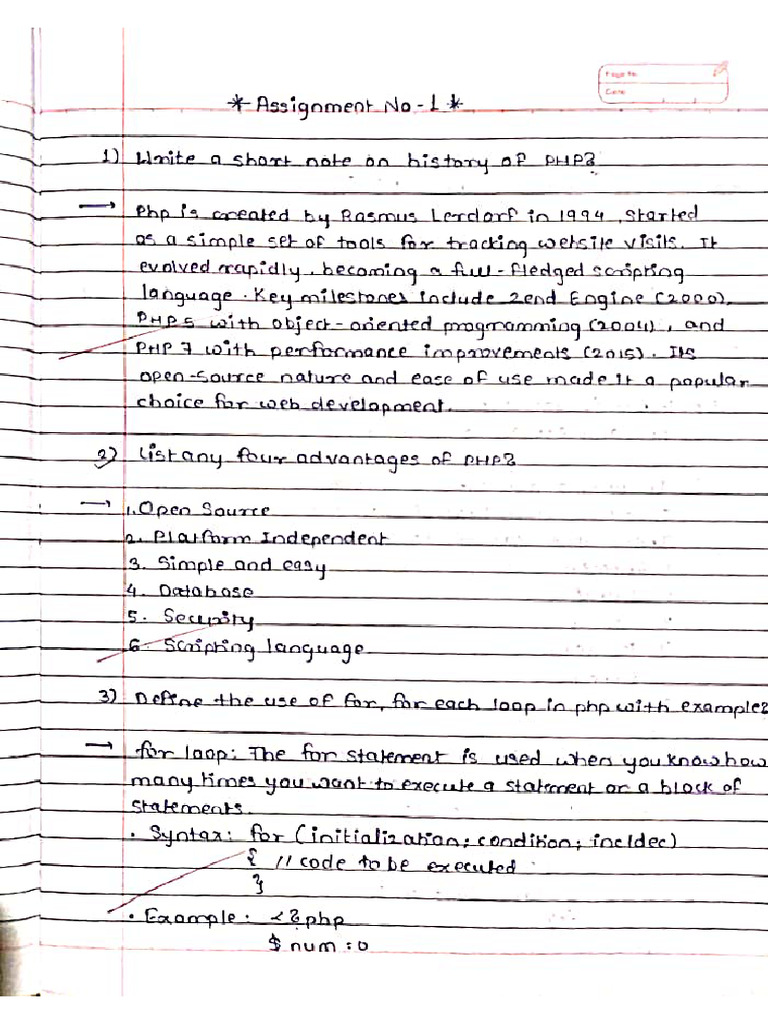 Page No.
Date
* Assignment No - 1 *
1) Write a short note on history of PHP?
→ Php is created by Rasmus Lerdorf in 1994, started
as a simple set of tools for tracking website visits. It
evolved rapidly, becoming a full-fledged scripting
language. Key milestones include Zend Engine (2000),
PHP 5 with object-oriented programming (2004), and
PHP 7 with performance improvements (2015). Its
open-source nature and ease of use made it a popular
choice for web development.
2) List any four advantages of PHP?
→ 1. Open Source
2. Platform Independent
3. Simple and easy
4. Database
5. Security
6. Scripting language
3) Define the use of for, for each loop in php with example?
→ for loop: The for statement is used when you know how
many times you want to execute a statement or a block of
statements.
• Syntax: for (initialization; condition; inc/dec)
{ // code to be executed
}
• Example: <?php
$ num = 0